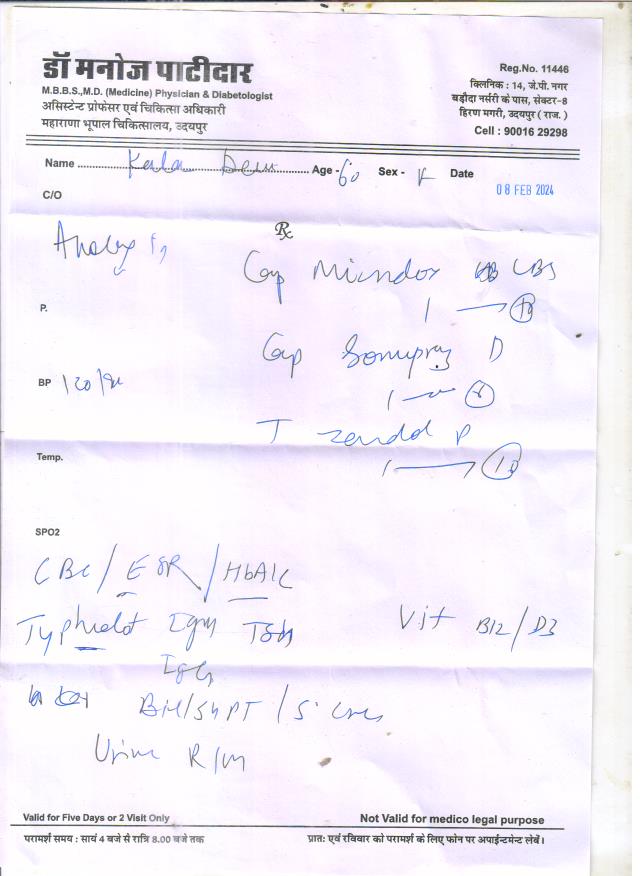 डॉ मनोज पाटीदार
M.B.B.S.,M.D. (Medicine) Physician & Diabetologist
असिस्टेन्ट प्रोफेसर एवं चिकित्सा अधिकारी
महाराणा भूपाल चिकित्सालय, उदयपुर
Reg.No. 11446
क्लिनिक : 14, जे.पी. नगर
बड़ौदा नर्सरी के पास, सेक्टर-8
हिरण मगरी, उदयपुर ( राज. )
Cell : 90016 29298
Name Age - 60 Sex - F Date 08 FEB 2024
C/O
Rx
Cap
1
P.
Cap D
1
BP 120/
T P
1
Temp.
SPO2
CBC / ESR / HbA1C
Typhidot IgM TSH Vit B12/D3
IgG
/SGPT / S.
Urine R/M
Valid for Five Days or 2 Visit Only Not Valid for medico legal purpose
परामर्श समय : सायं 4 बजे से रात्रि 8.00 बजे तक प्रातः एवं रविवार को परामर्श के लिए फोन पर अपाईन्टमेन्ट लेबें।